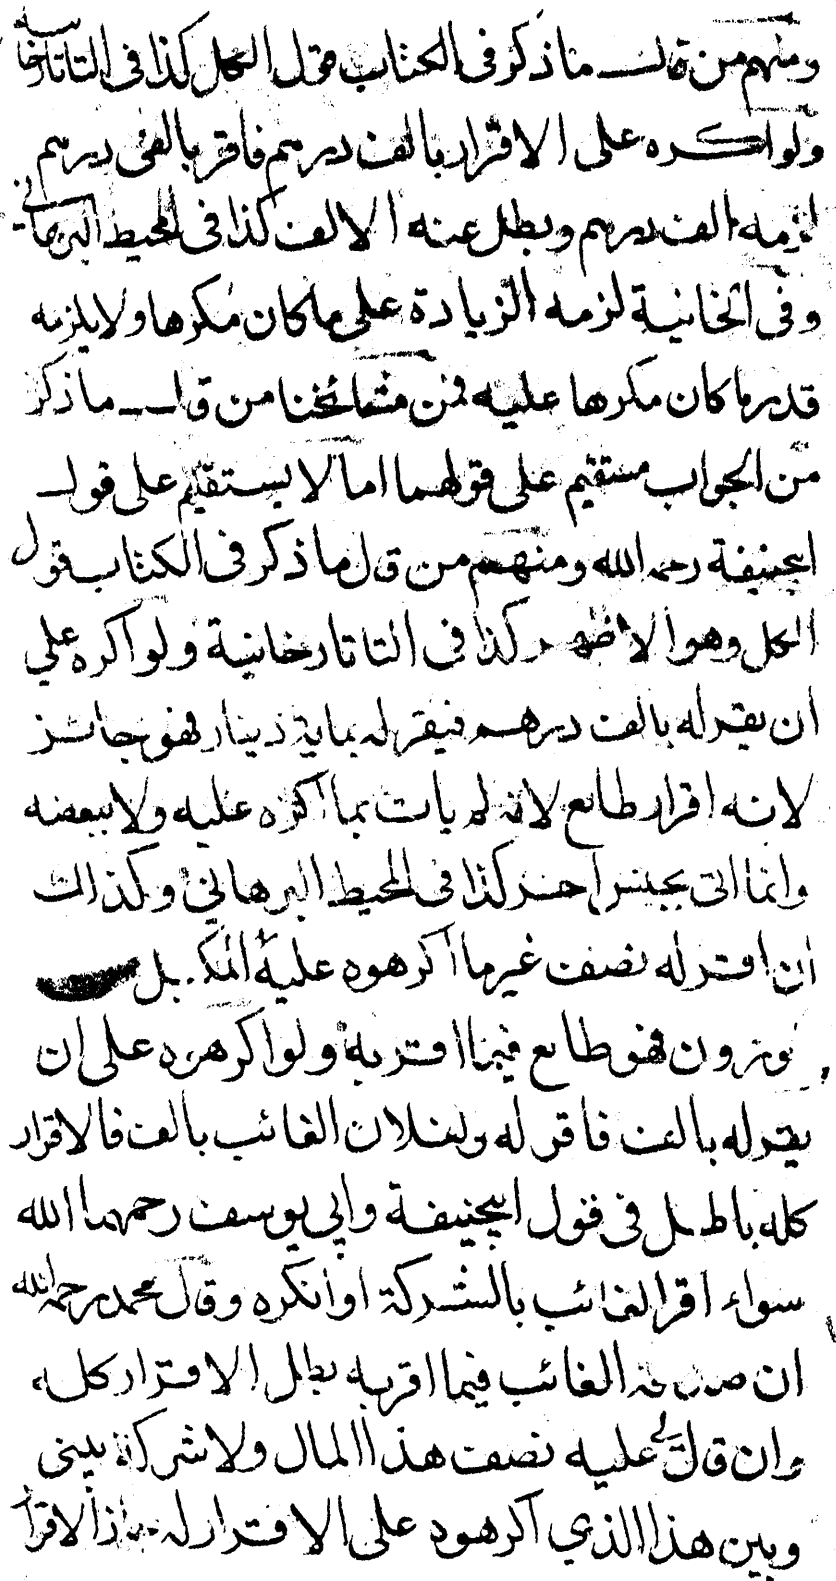 ومنهم من قال ما ذكر فى الكتاب قول الكل كذا فى التاتارخانيه
ولو اكره على الاقرار بالف درهم فاقر بالفى درهم
لزمه الف درهم وبطل عنه الالف كذا فى المحيط البرهانى
وفى الخانية لزمه الزيادة على ما كان مكرها ولا يلزمه
قدر ما كان مكرها عليه فمن مشائخنا من قال ما ذكر
من الجواب مستقيم على قولهما اما لا يستقيم على قول
ابيحنيفة رحمه الله ومنهم من قال ما ذكر فى الكتاب قول
الكل وهو الاظهر كذا فى التاتارخانية ولو اكره علي
ان يقر له بالف درهم فيقر له بماية دينار فهو جائز
لانه اقرار طايع لانه لم يات بما اكره عليه ولا ببعضه
وانما اتى بجنس اخر كذا فى المحيط البرهاني وكذلك
ان اقر له نصف غير ما اكرهوه عليه المكيل
موزون فهو طايع فيما اقر به ولو اكرهوه على ان
يقر له بالف فاقر له ولفلان الغائب بالف فالاقرار
كله باطل فى قول ابيحنيفة وابي يوسف رحمهما الله
سواء اقر الغائب بالشركة او انكره وقال محمد رحمه الله
ان صدقه الغائب فيما اقر به بطل الاقرار كله
وان قال لي عليه نصف هذا المال ولا شركة بينى
وبين هذا الذي اكرهوه على الاقرار له جاز الاقرار